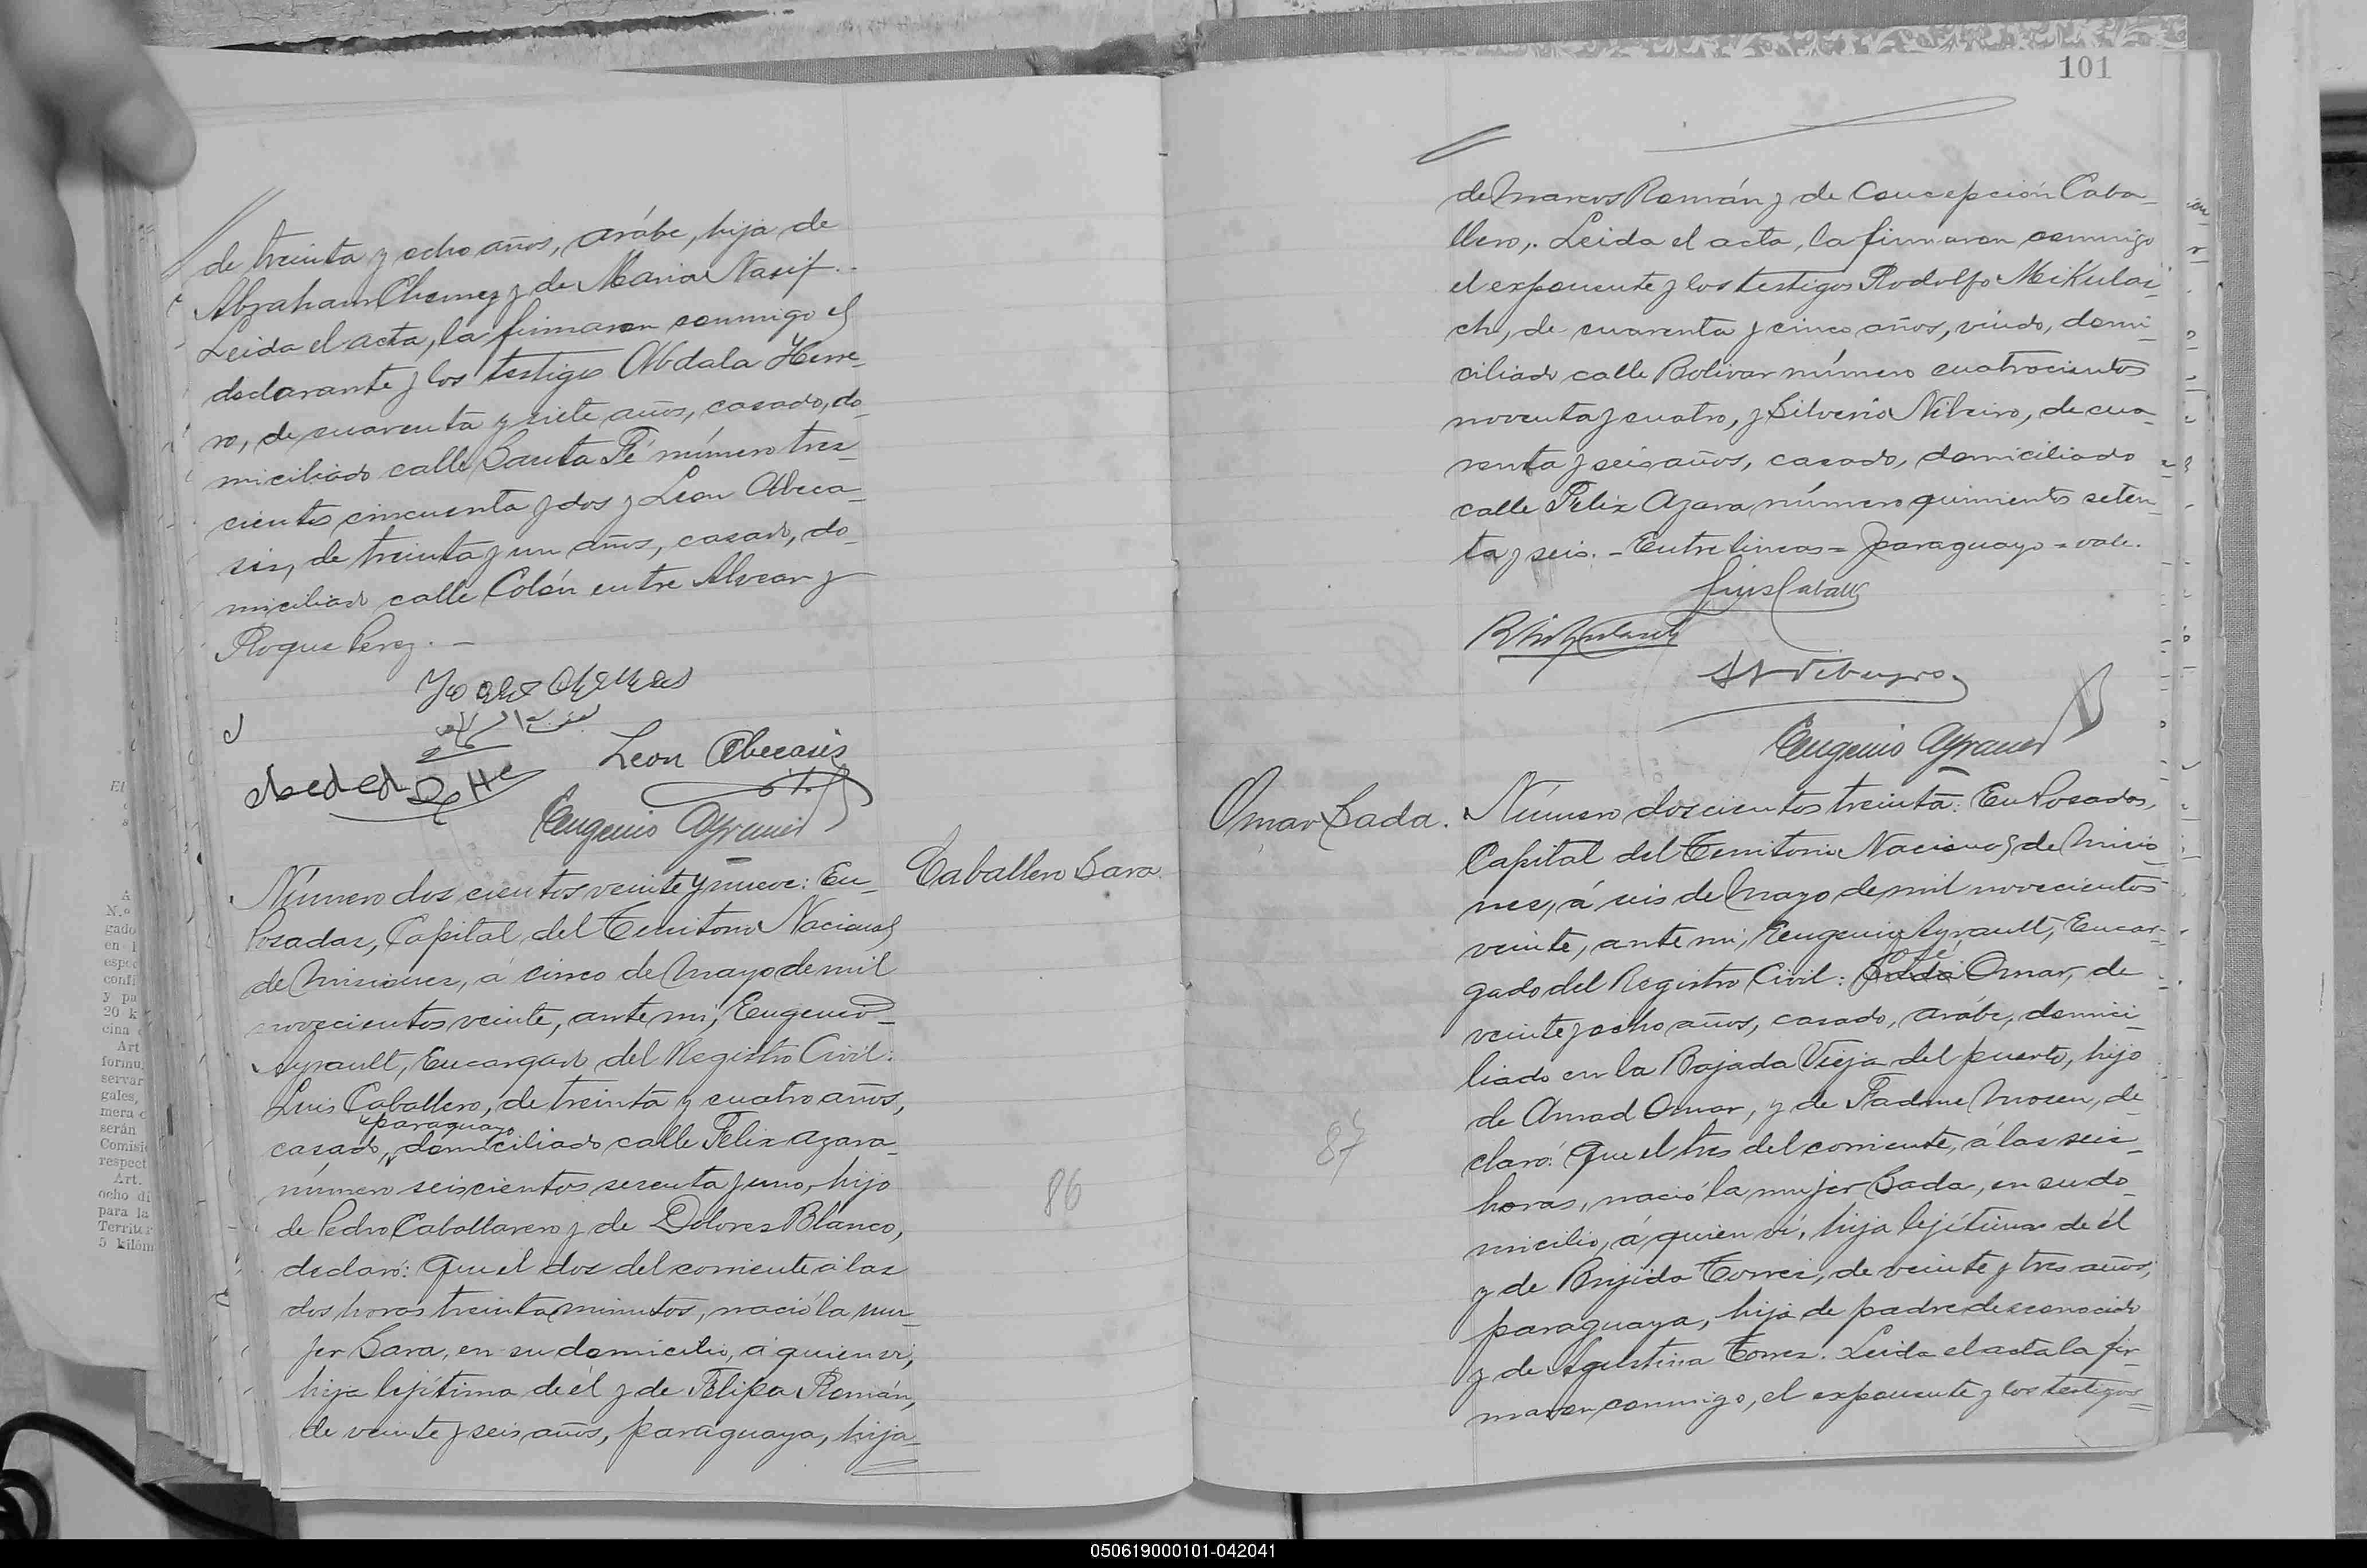 de treinta y ocho años, arábe, hija de
Abraham Chemez y de Maria Nasif.-
Leida el acta, la firmaron conmigo el
declarante y los testigos Abdala Herre-
ro, de cuarenta y siete años, casado, do-
miciliado calle Santa Fé número tres-
cientos cincuenta y dos y Leon Abeca-
sis, de treinta y un años, casado, do-
miciliado calle Colón entre Alvear y
Roque Perez. -
Leon Abecasis
Eugenio Ayrault
Número dos cientos veinte y nueve: En-
Posadas, Capital del Territorio Nacional
de Misiones, á cinco de Mayo de mil
novecientos veinte, ante mi, Eugenio-
Ayrault, Encargado del Registro Civil:
Luis Caballero, de treinta y cuatro años,
paraguayo
casado, domiciliado calle Felix Azara-
número seiscientos sesenta y uno, hijo
de Pedro Caballarero y de Dolores Blanco,
declaró: Que el dos del corriente á las
dos horas treinta minutos, nació la mu-
jer Sara, en su domicilio, á quien ví,
hija lejítima de él y de Felipa Román,
de veinte y seis años, paraguaya, hija-
Caballero Sara.
86
101
de Marcos Román y de Concepción Caba-
llero,. Leida el acta, la firmaron conmigo
el exponente y los testigos Rodolfo Mikulai-
ch, de cuarenta y cinco años, viudo, domi-
ciliado calle Bolivar número cuatrocientos
noventa y cuatro, y Silverio Nibeiro, de cua-
renta y seis años, casado, domiciliado
calle Felix Azara número quinientos seten-
ta y seis. - Entre lineas = paraguayo = vale.
Luis Caball
Eugenio Ayrault
Omar Sada.
Número doscientos treinta: En Posadas,
Capital del Territorio Nacional de Misio-
nes, á seis de Mayo de mil novecientos
veinte, ante mi, Eugenio Ayrault, Encar-
José
gado del Registro Civil: Omar, de
veinte y ocho años, casado, arábe, domici-
liado en la Bajada Vieja del puerto, hijo
de Amad Omar, y de Fadme Mosen, de-
claró: Que el tres del corriente, á las seis-
horas, nació la mujer Sada, en su do-
micilio, á quien ví, hija lejítima de él
y de Brijida Torres, de veinte y tres años,
paraguaya, hija de padre desconocido
y de Agustina Torres. Leida el acta la fir-
maron conmigo, el exponente y los testigos=
87
050619000101-042041